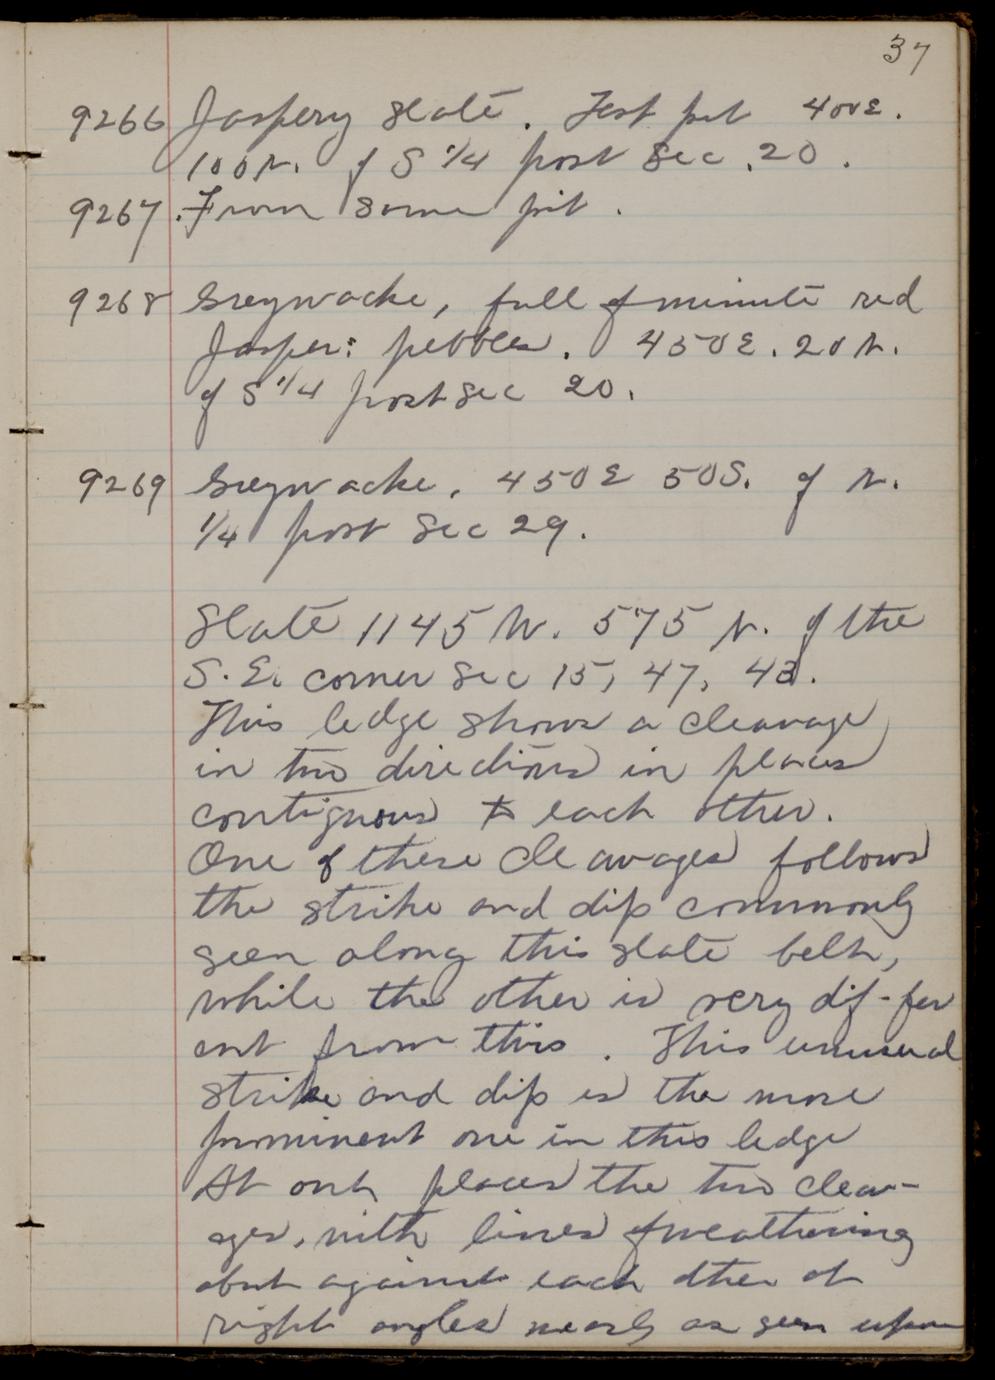 37
9266 Jaspery slate. Test pit 400E.
100N. of S 1/4 post Sec. 20.
9267. From same pit.
9268 Greywacke, full of minute red
Jasper: pebbles. 450E. 20N.
of S 1/4 post Sec 20.
9269 Greywacke. 450E 50S. of N.
1/4 post Sec 29.
Slate 1145 W. 575 N. of the
S.E. corner Sec 15, 47, 43.
This ledge shows a cleavage
in two directions in places
contiguous to each other.
One of these cleavages follows
the strike and dip commonly
seen along this slate belt,
while the other is very dif-fer
ent from this. This unusual
strike and dip is the more
prominent one in this ledge
At one places the two cleav-
ges, with lines of weathering
abut against each other at
right angles nearly as seen upon